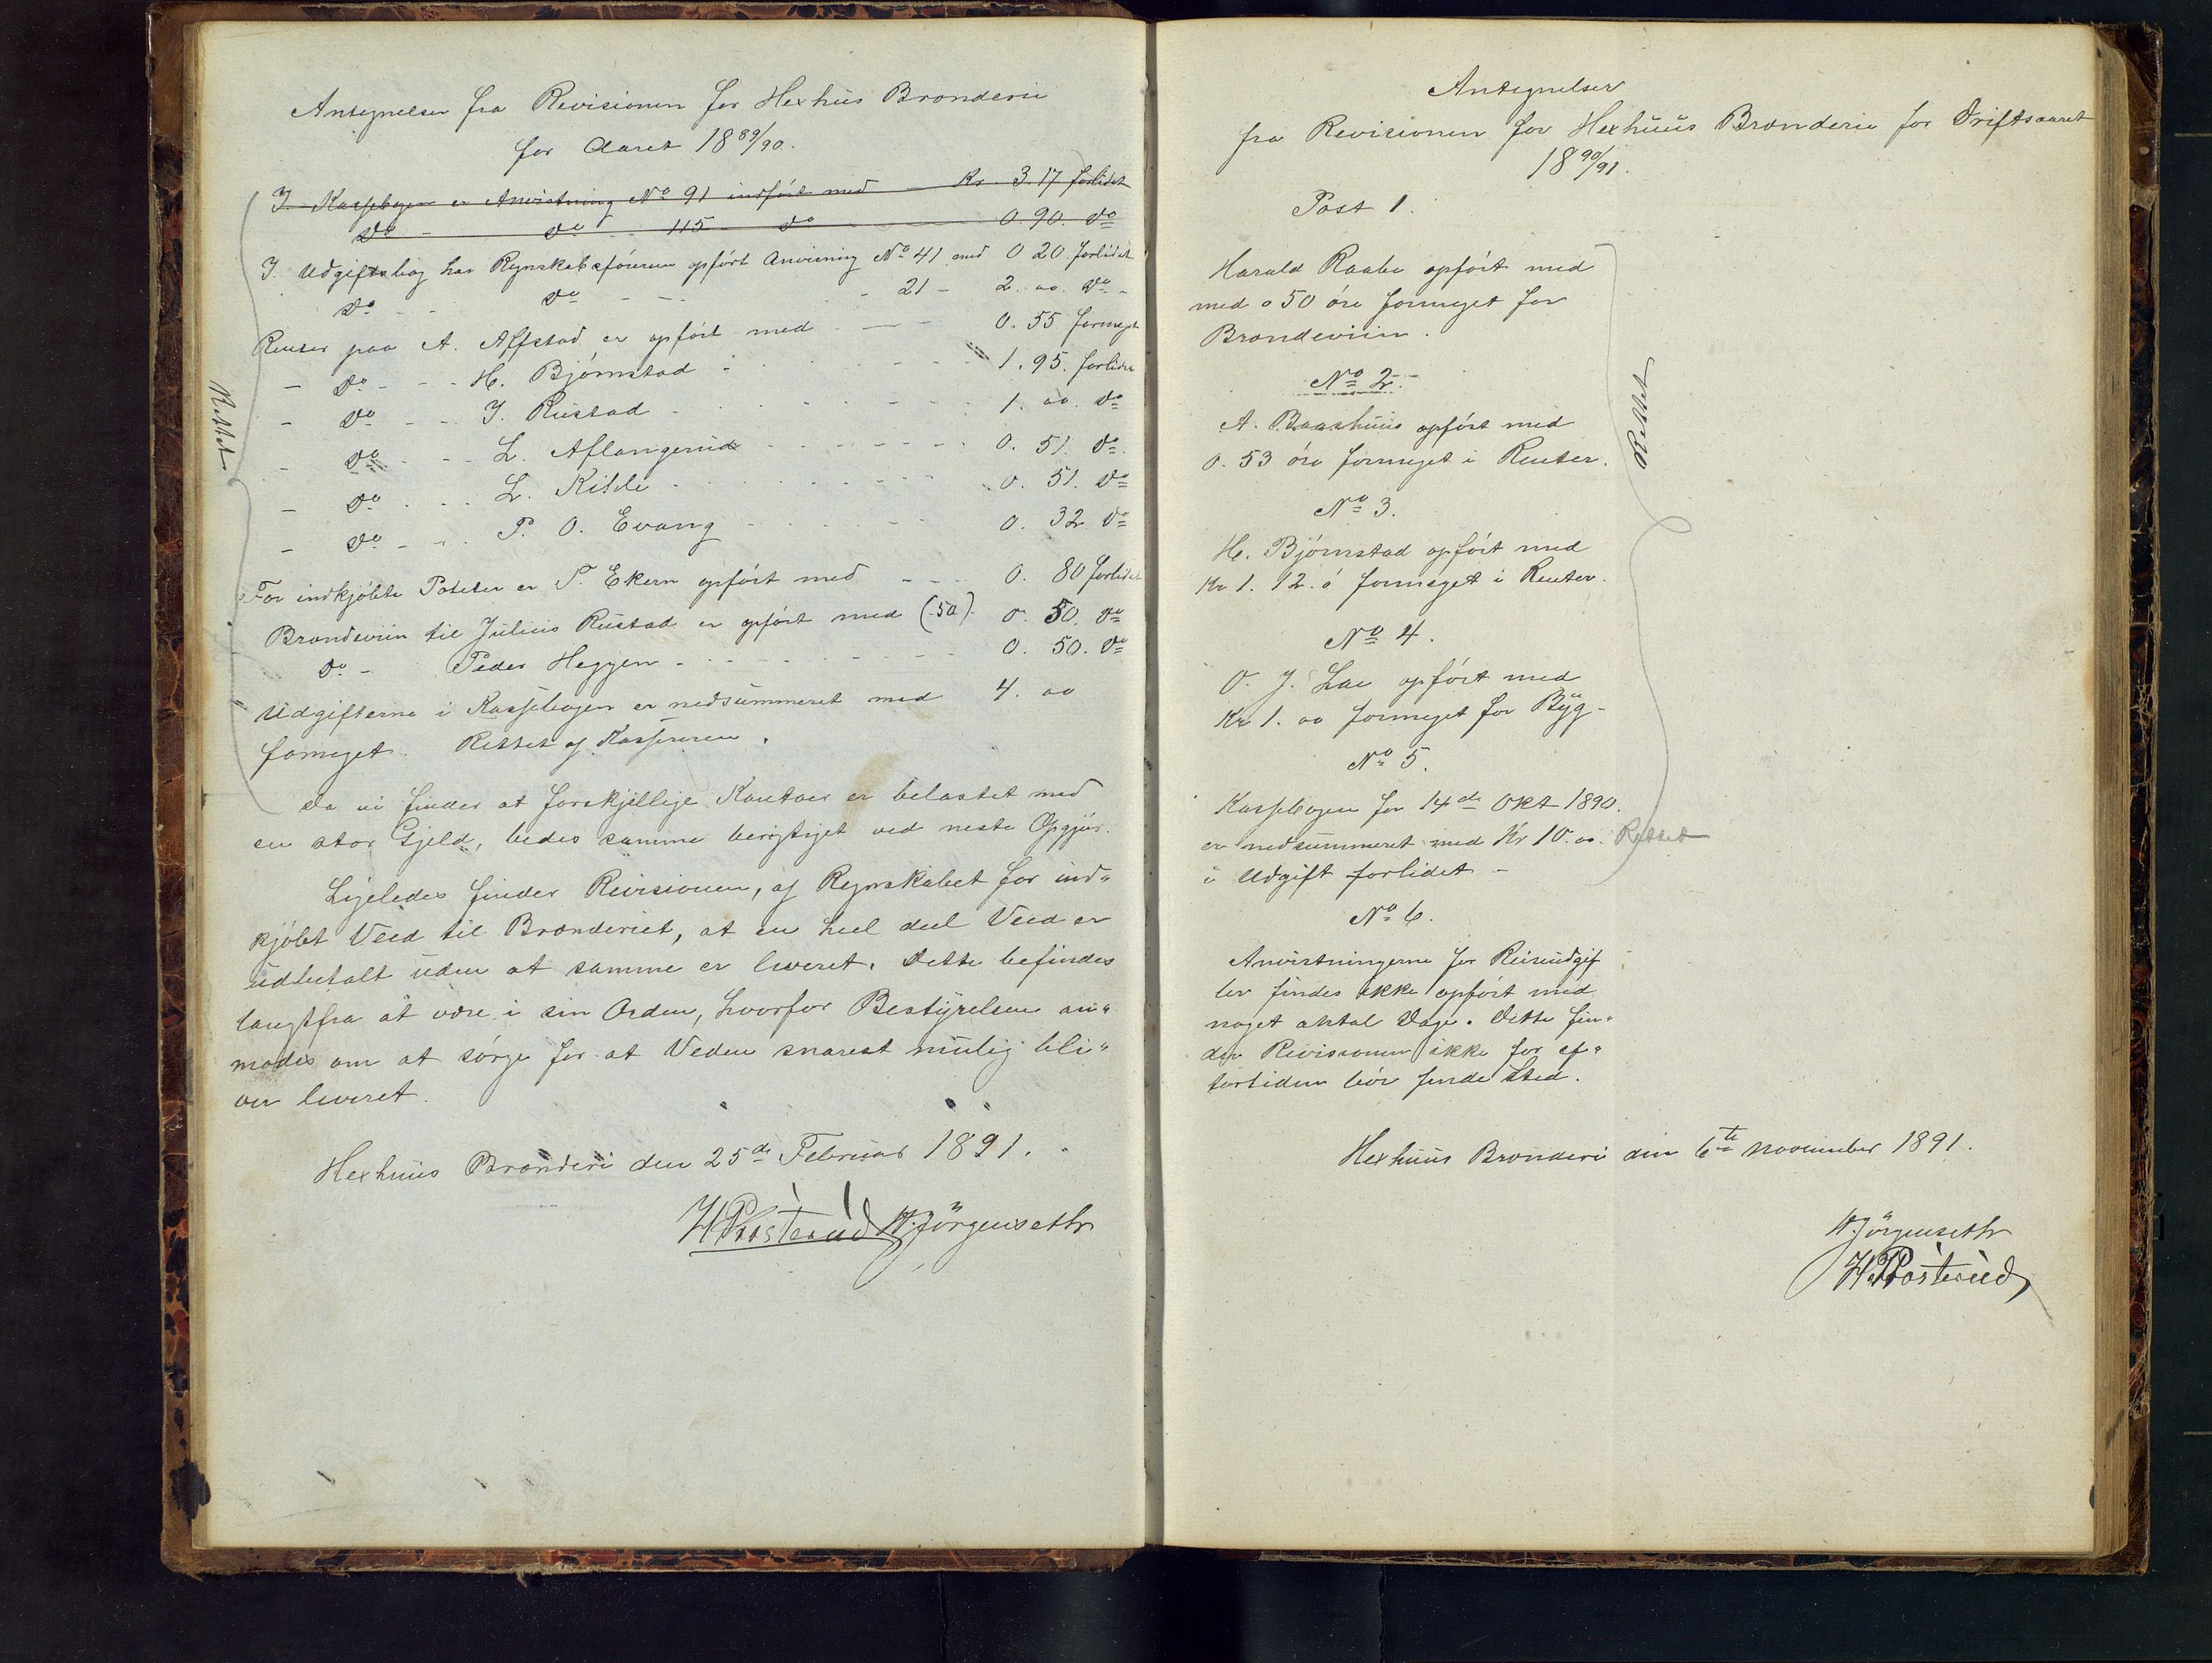 Antegnelser fra Revisionen for Hexhus Brænderie
for Aaret 1889/90.
I. Kassebogen er Anvistning No 91 indført med – Kr. 3.17 forlidet
Do – Do – 115 – Do 0.90. Do
I. Udgiftsbog har Regnskabsføreren opført Anvisning No 41 med 0 20 forlidet
Do – Do – 21 – 2. oo. Do –
Renter paa A. Affstad er opført med – 0. 55 formeget
– Do – H. Bjørnstad – 1. 95. forlidet
– Do – J. Rustad – 1. oo. Do
– Do – L. Aflangerud – 0. 51. Do
– Do – L. Kilde – 0. 51. Do
– Do – P. O. Evang – 0. 32 Do
For indkjøbte Poteter er P. Ekern opført med – 0. 80 forlidet
Brændeviin til Julius Rustad er opført med (50) 0. 50. Do
Do – Peder Heggen – 0. 50. Do
Udgifterne i Kassebogen er nedsummeret med 4. oo
formeget. Rettet af Kassereren.
Rettet
Da vi finder at forskjellige Kontoer er belastet med
en stor Gjeld, bedes samme berigtiget ved neste Opgjør.
Ligeledes finder Revisionen, af Regnskabet for ind„
kjøbt Veed til Brænderiet, at en heel deel Veed er
udbetalt uden at samme er leveret. Dette befindes
langtfra at være i sin Orden, hvorfor Bestyrelsen an„
modes om at sørge for at Veden snarest mulig bli„
ver leveret.
Hexhuus Brænderi den 25de Februar 1891.
H Prosterud N. Jörgenseth
Antegnelser
fra Revisionen for Hexhuus Brænderie for Driftsaaret
1890/91.
Post 1.
Harald Raabe opført med
med o 50 øre formeget for
Brændeviin.
No 2.
A. Baashuus opført med
0. 53 øre formeget i Renter.
No 3.
H. Bjørnstad opført med
Kr 1. 12. ø formeget i Renter.
No 4.
O. J. Lae opført med
Kr 1. oo formeget for Byg–
No 5.
Kassebogen for 14de Okt 1890.
er nedsummeret med Kr 10. oo. Rettet
i Udgift forlidet –
Rettet
No 6.
Anvistningerne for Reiseudgif
ter findes ikke opført med
noget aktal Dage. Dette fin„
der Revisionen ikke for ef„
tertiden bør finde Sted.
Hexhuus Brænderi den 6te november 1891.
N. Jörgenseth
H. Prosterud